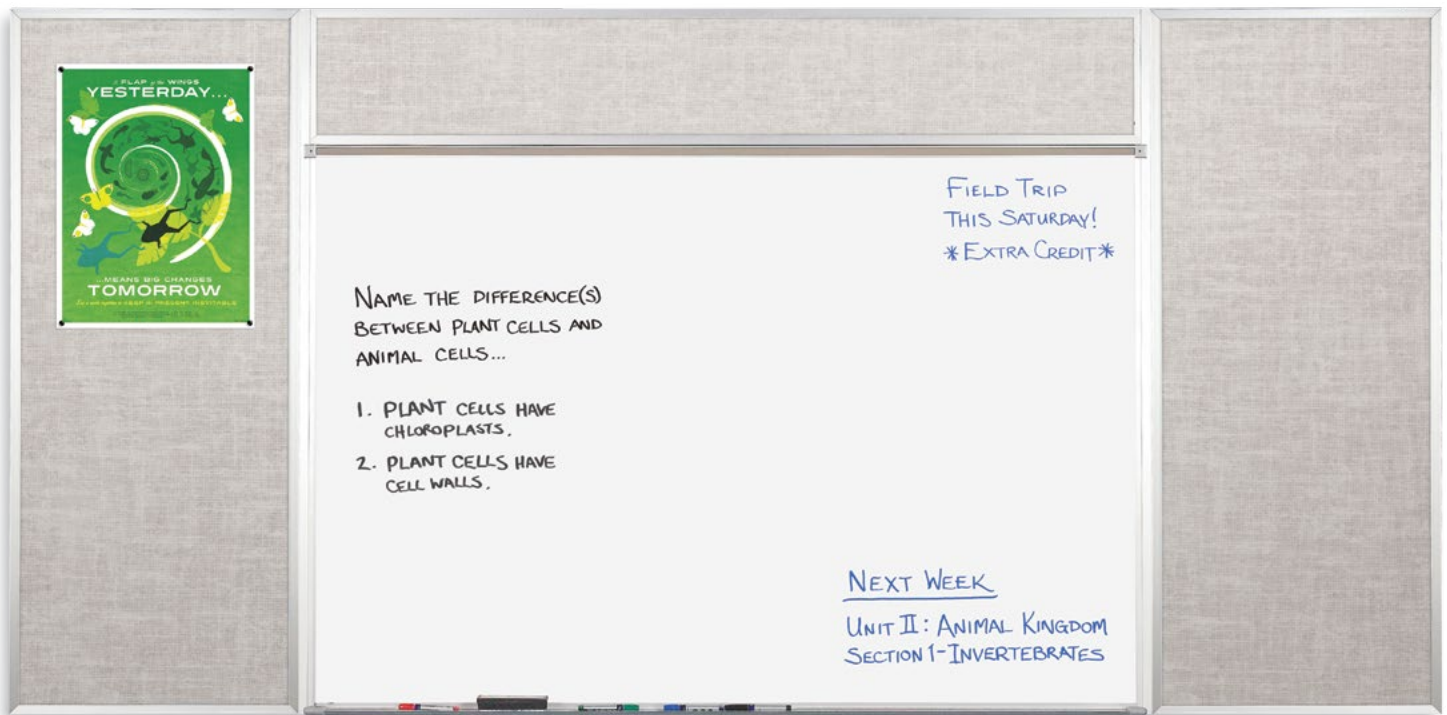 A FLAP of the WINGS
YESTERDAY...
...MEANS BIG CHANGES
TOMORROW
KEEP A PRESENT INEVITABLE
FIELD TRIP
THIS SATURDAY!
*EXTRA CREDIT*
NAME THE DIFFERENCE(S)
BETWEEN PLANT CELLS AND
ANIMAL CELLS...
1. PLANT CELLS HAVE
CHLOROPLASTS.
2. PLANT CELLS HAVE
CELL WALLS.
NEXT WEEK
UNIT II: ANIMAL KINGDOM
SECTION 1-INVERTEBRATES